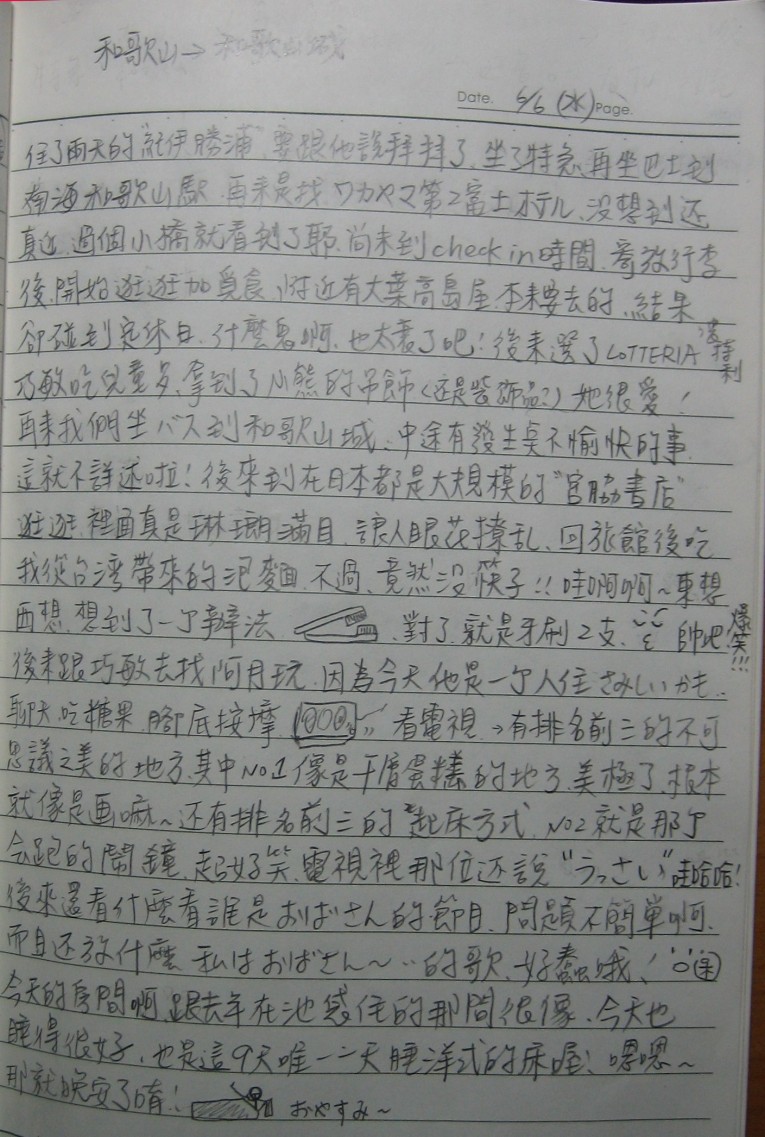 和歌山→和歌山城
Date. 5/6 (水) Page.
住了兩天的"紀伊勝浦"要跟他說拜拜了.坐了特急,再坐巴士到
南海和歌山駅.再來是找ワカヤマ第2富士ホテル.没想到还
真近.過個小橋就看到了耶.尚未到check in時間.寄放行李
後,開始逛逛加覓食,附近有大葉高島屋.本來要去的,結果
卻碰到定休日.什麼鬼啊.也太衰了吧!後來選了LOTTERIA
巧敏吃兒童餐,拿到了小熊的吊飾(还是裝飾品?)她很愛!
再來我們坐バス到和歌山城、中途有發生臭不愉快的事
這就不詳述啦!後來到在日本都是大規模的"宮脇書店"
逛逛.裡面真是琳瑯滿目.讓人眼花撩乱.回旅館後吃
我從台湾帶來的泡麵.不過、竟然没筷子!!哇啊啊~東想
西想.想到了一个辦法.對了.就是牙刷2支.帥吧!爆笑!!!
後來跟巧敏去找阿月玩.因為今天他是一个人住さみしいかも..
聊天.吃糖果.腳底按摩.看電視→有排名前三的不可
思議之美的地方.其中No1像是千層蛋糕的地方.美極了.根本
就像是画嘛~还有排名前三的"起床方式.No2就是那个
会跑的鬧鐘,超好笑.電視裡那位还說"うっさい"哇哈哈!
後來還看什麼看誰是おばさん的節目.問題不簡単啊.
而且还放什麼 私はおばさん~‥的歌.好蠢哦!
今天的房間啊.跟去年在池袋住的那間很像.今天也
睡得很好.也是這9天唯一二天睡洋式的床喔!嗯嗯~
那就晚安了唷! おやすみ~